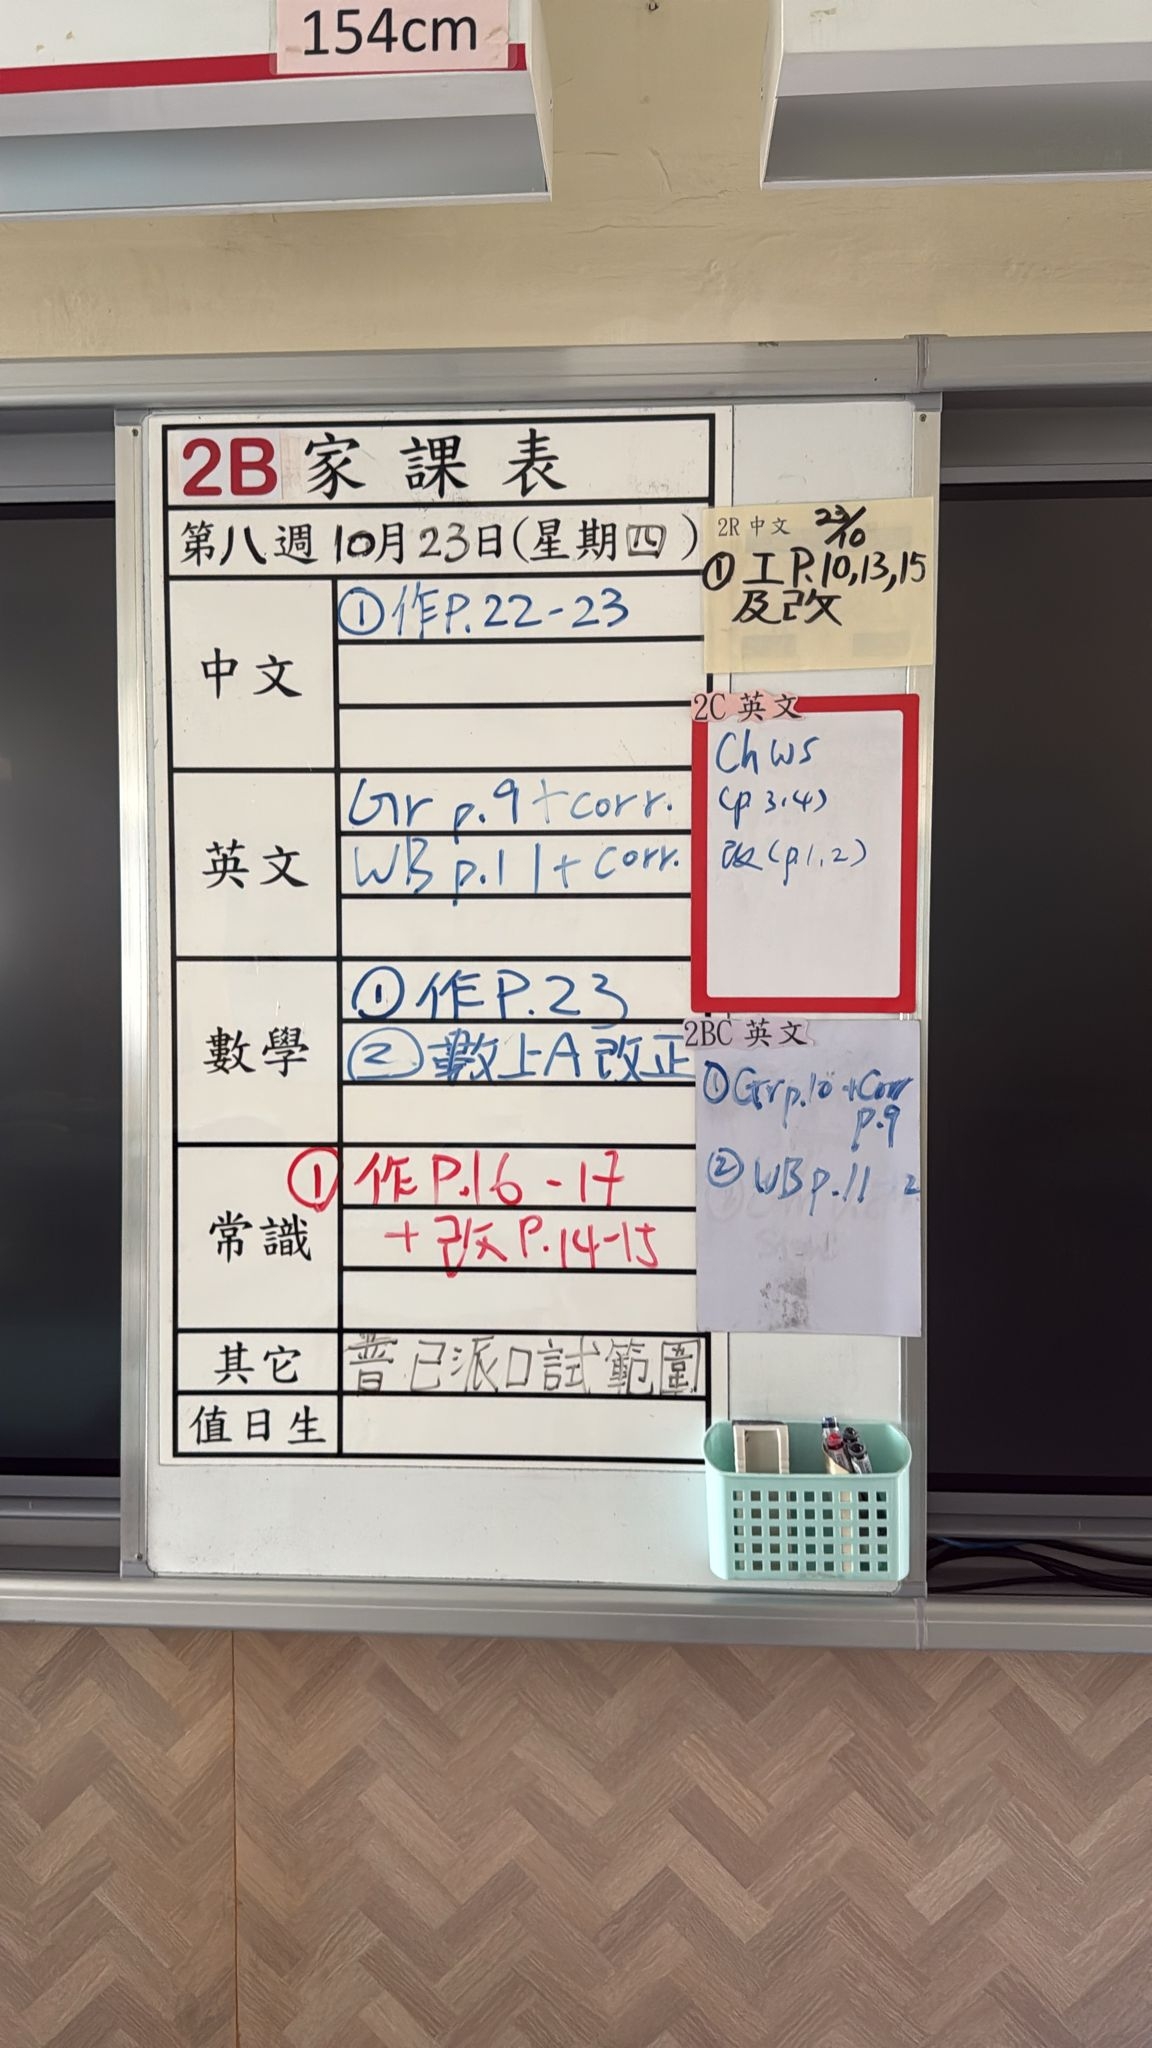 154cm
2B 家課表
第八週10月23日(星期四)
中文
①作P.22-23
英文
Gr p.9+corr.
WB p.11+corr.
數學
①作P.23
②數上A改正
常識
①作P.16-17
+改P.14-15
其它
普已派口試範圍
值日生
2R中文 23/10
①工P.10,13,15
及改
2C英文
Ch WS
(p.3,4)
改(p.1,2)
2BC英文
①Gr p.10+Corr
p.9
②WB p.11